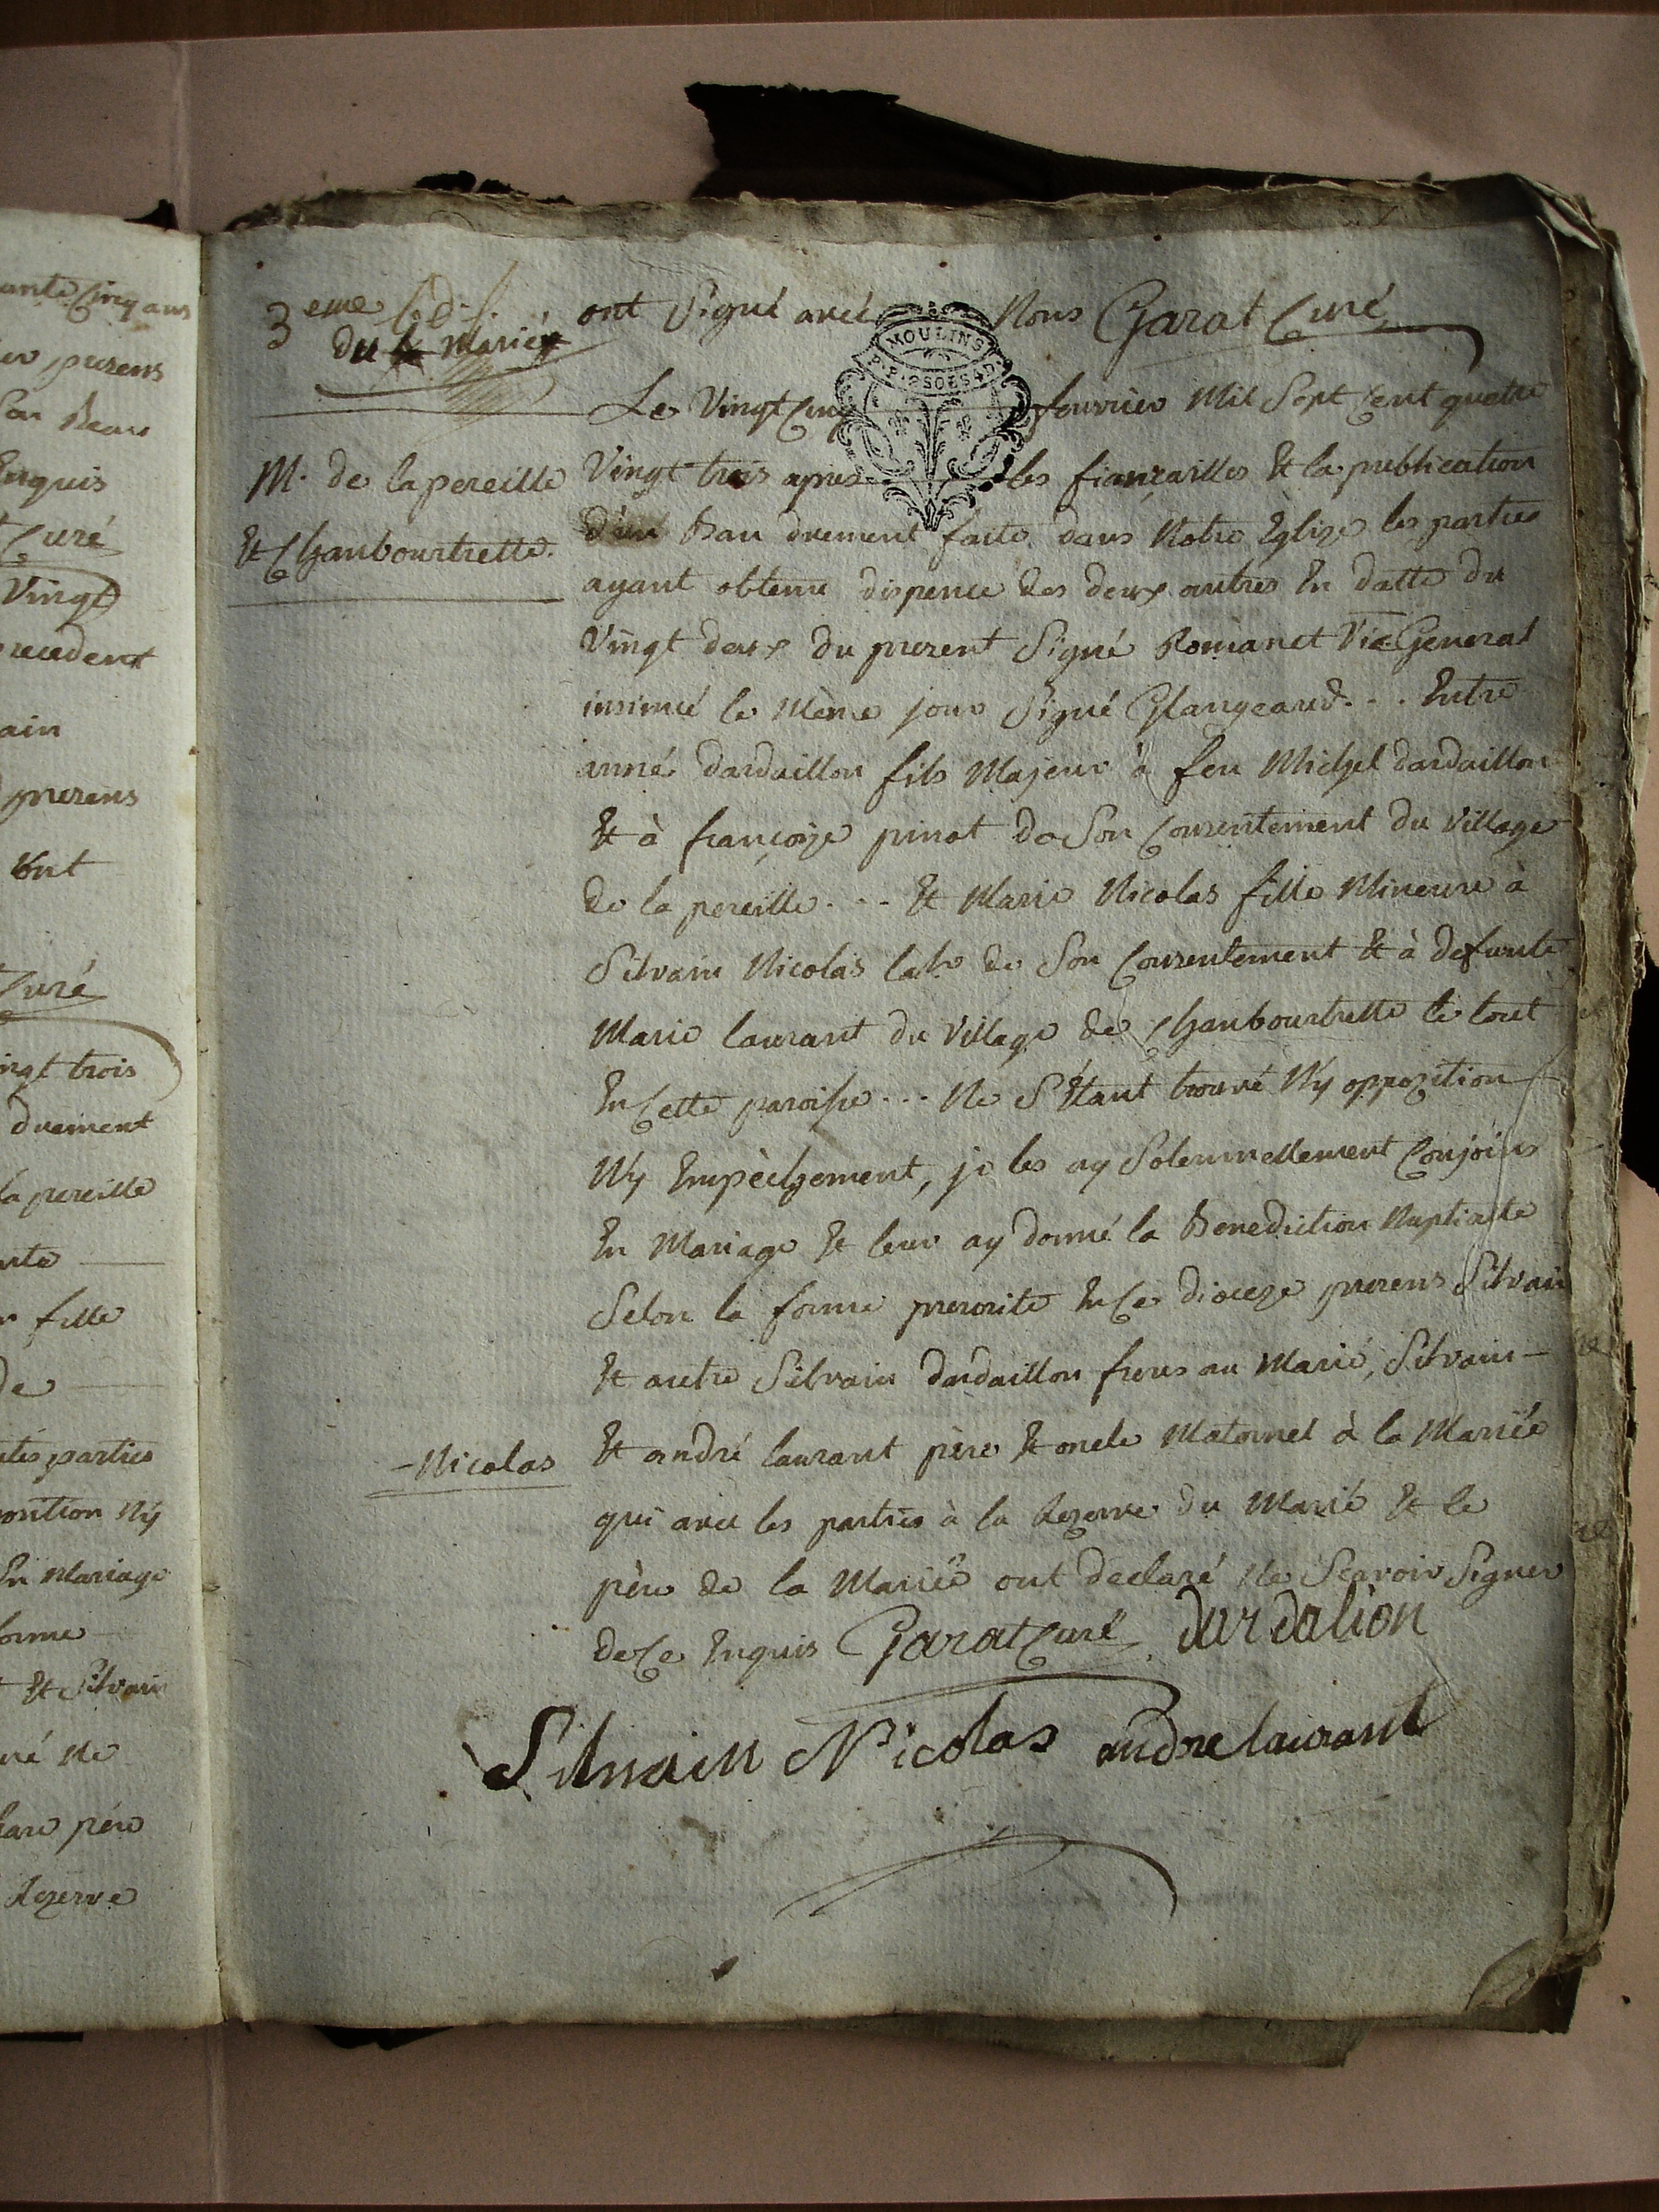 ante Cinq ans
presens
Requis
Curé
Vingt
precedent
ain
presens
ont
Curé
ingt trois
duement
la pereille
fille
de
parties
Ny
En Mariage
forme
Et Silvain
Ne
père
Rezerve
3eme
du le Mariée
M. de la pereille
Et Chanbourtrette.
- Nicolas
ont Signé avec Nous Garat Curé
MOULINS
Le Vingt Cinq fevrier Mil Sept Cent quatre
Vingt trois apres les fiançailles Et la publication
d'un Ban duement faite dans Notre Eglize les parties
ayant obtenu dispence des deux autres En datte du
Vingt deux du present Signé Romanet Vic. General
insinué le Même jour Signé Glangeaud... Entre
anné dardaillon fils Majeur à feu Michel dardaillon
Et à françoize pinot de Son Consentement du Village
de la pereille... Et Marie Nicolas fille Mineure à
Silvain Nicolas labr de Son Consentement Et à defunte
Marie laurant du Village de Chanbourtrette le tout
En Cette paroisse... Ne S'Etant trouvé Ny oppozition
Ny Empèchement, je les ay Solennellement Conjoins
En Mariage Et leur ay donné la Benediction Nuptialle
Selon la forme prescrite En Ce dioceze presens Silvain
Et autre Silvain dardaillon freres au Marié, Silvain -
Et andré laurant père Et oncle Maternel à la Mariée
qui avec les parties à la Rezerve du Marié Et le
père de la Mariée ont declaré Ne Scavoir Signer
de Ce Enquis Garat Curé dardalion
Silvain Nicolas andre laurant